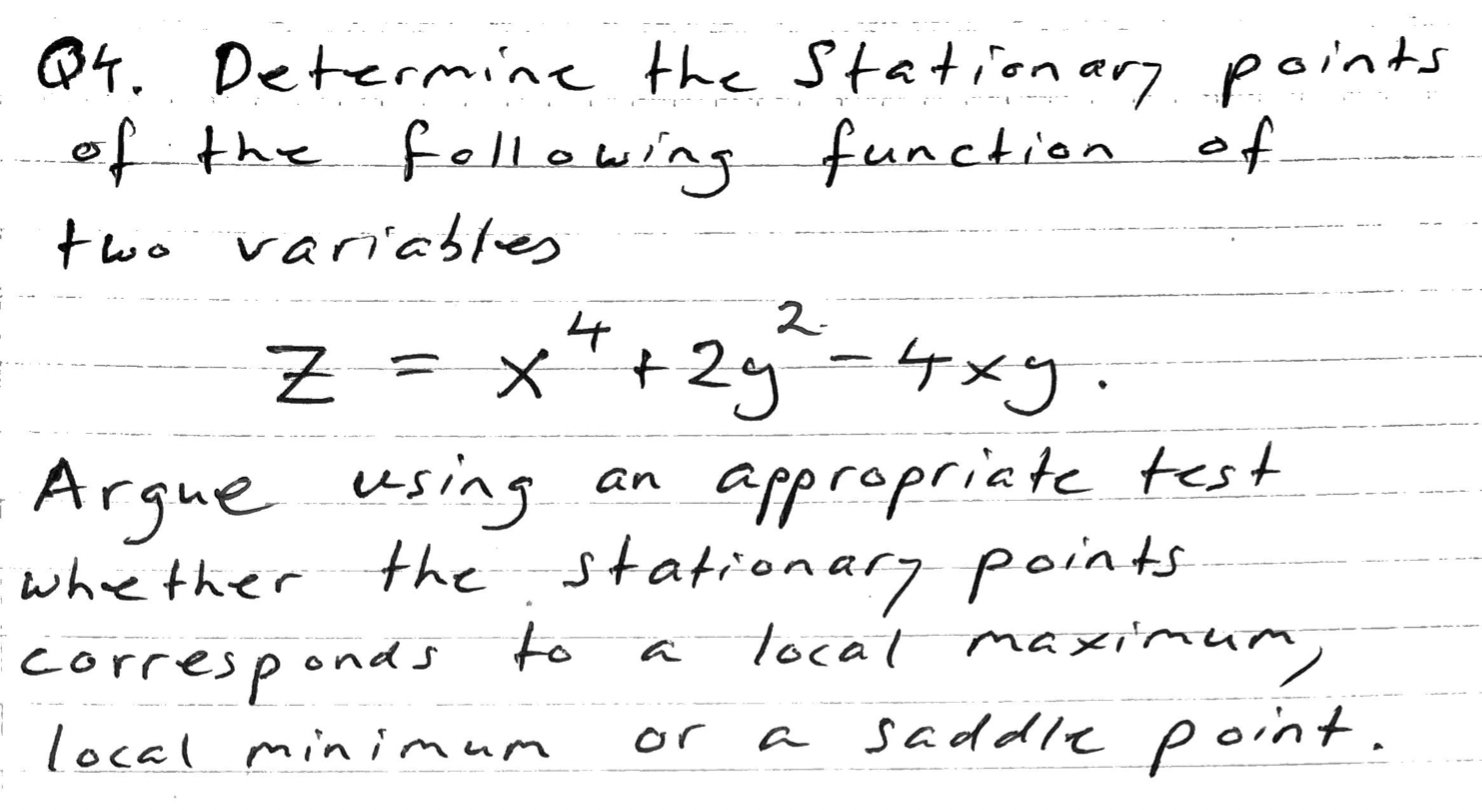 Q4. Determine the Stationary points
of the following function of
two variables
z = x⁴ + 2y² - 4xy.
Argue using an appropriate test
whether the stationary points
corresponds to a local maximum,
local minimum or a saddle point.